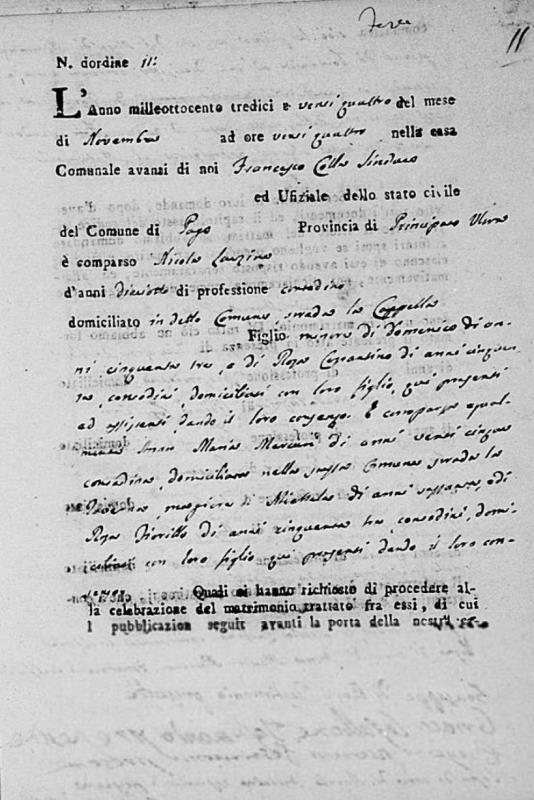 11
N. dordine 11:
L'Anno milleottocento tredici e venti quattro del mese
di Novembre ad ore venti quattro nella casa
Comunale avanzi di noi Francesco Colle Sindaco
ed Ufiziale dello stato civile
del Comune di Pago Provincia di Principato Ultra
è comparso Nicola
d'anni diciotto di professione contadino
domiciliato in detto Comune strada la Cappella
Figlio minore di Domenico di an-
ni cinquanta tre, e di Rosa Costantino di anni cinquan
ta, contadini domiciliati con loro figlio, qui presenti
ed assistenti dando il loro consenzo. È comparsa egual-
mente Anna Maria di anni venti cinque
contadina, domiciliata nella stessa Comune strada la
magiore di Michele di anni sessanta, e di
Rosa Fiorillo di anni cinquanta tre, contadini, domi-
ciliati con loro figlia qui presenti dando il loro con-
senzo. Quali ci hanno richiesto di procedere al-
la celebrazione del matrimonio trattato fra essi, di cui
l pubblicazion seguit avanti la porta della nostra